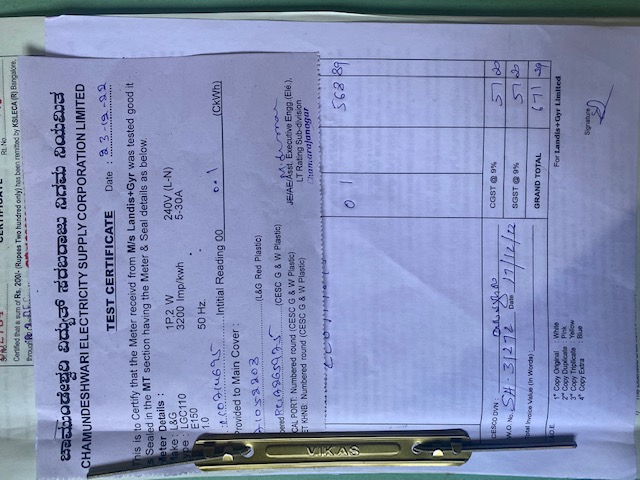 ಚಾಮುಂಡೇಶ್ವರಿ ವಿದ್ಯುತ್ ಸರಬರಾಜು ನಿಗಮ ನಿಯಮಿತ
CHAMUNDESHWARI ELECTRICITY SUPPLY CORPORATION LIMITED
TEST CERTIFICATE
Date :
This is to Certify that the Meter receivd from M/s Landis+Gyr was tested good it
is Sealed in the MT section having the Meter & Seal details as below.
Meter Details :
Make : L&G 1P,2 W 240V (L-N)
Type : LGC110 3200 Imp/kwh 5-30A
E150
1.0 50 Hz.
Intitial Reading 00 0.1 (CkWh)
rovided to Main Cover :
(L&G Red Plastic)
(CESC G & W Plastic)
CAL PORT: Numbered round (CESC G & W Plastic)
ET KNB: Numbered round (CESC G & W Plastic)
JE/AE/Asst. Executive Engg.(Ele.),
LT Rating Sub-division
Chamarajanagar
CERTIFICATE
RL No
Certified that a sum of Rs. 200/- (Rupees Two hundred only) has been remitted by KSLECA (R) Bangalore,
through
0 1 568 89
CESCO DVN :
CGST @ 9% 57 20
W.O. No. Date 17/12/22
SGST @ 9% 57 20
Total Invoice Value (In Words) :
GRAND TOTAL 671 29
For Landis+Gyr Limited
Signature
1st Copy Original : White
2nd Copy Duplicate : Pink
3rd Copy Triplicate : Yellow
4th Copy Extra : Blue
VIKAS